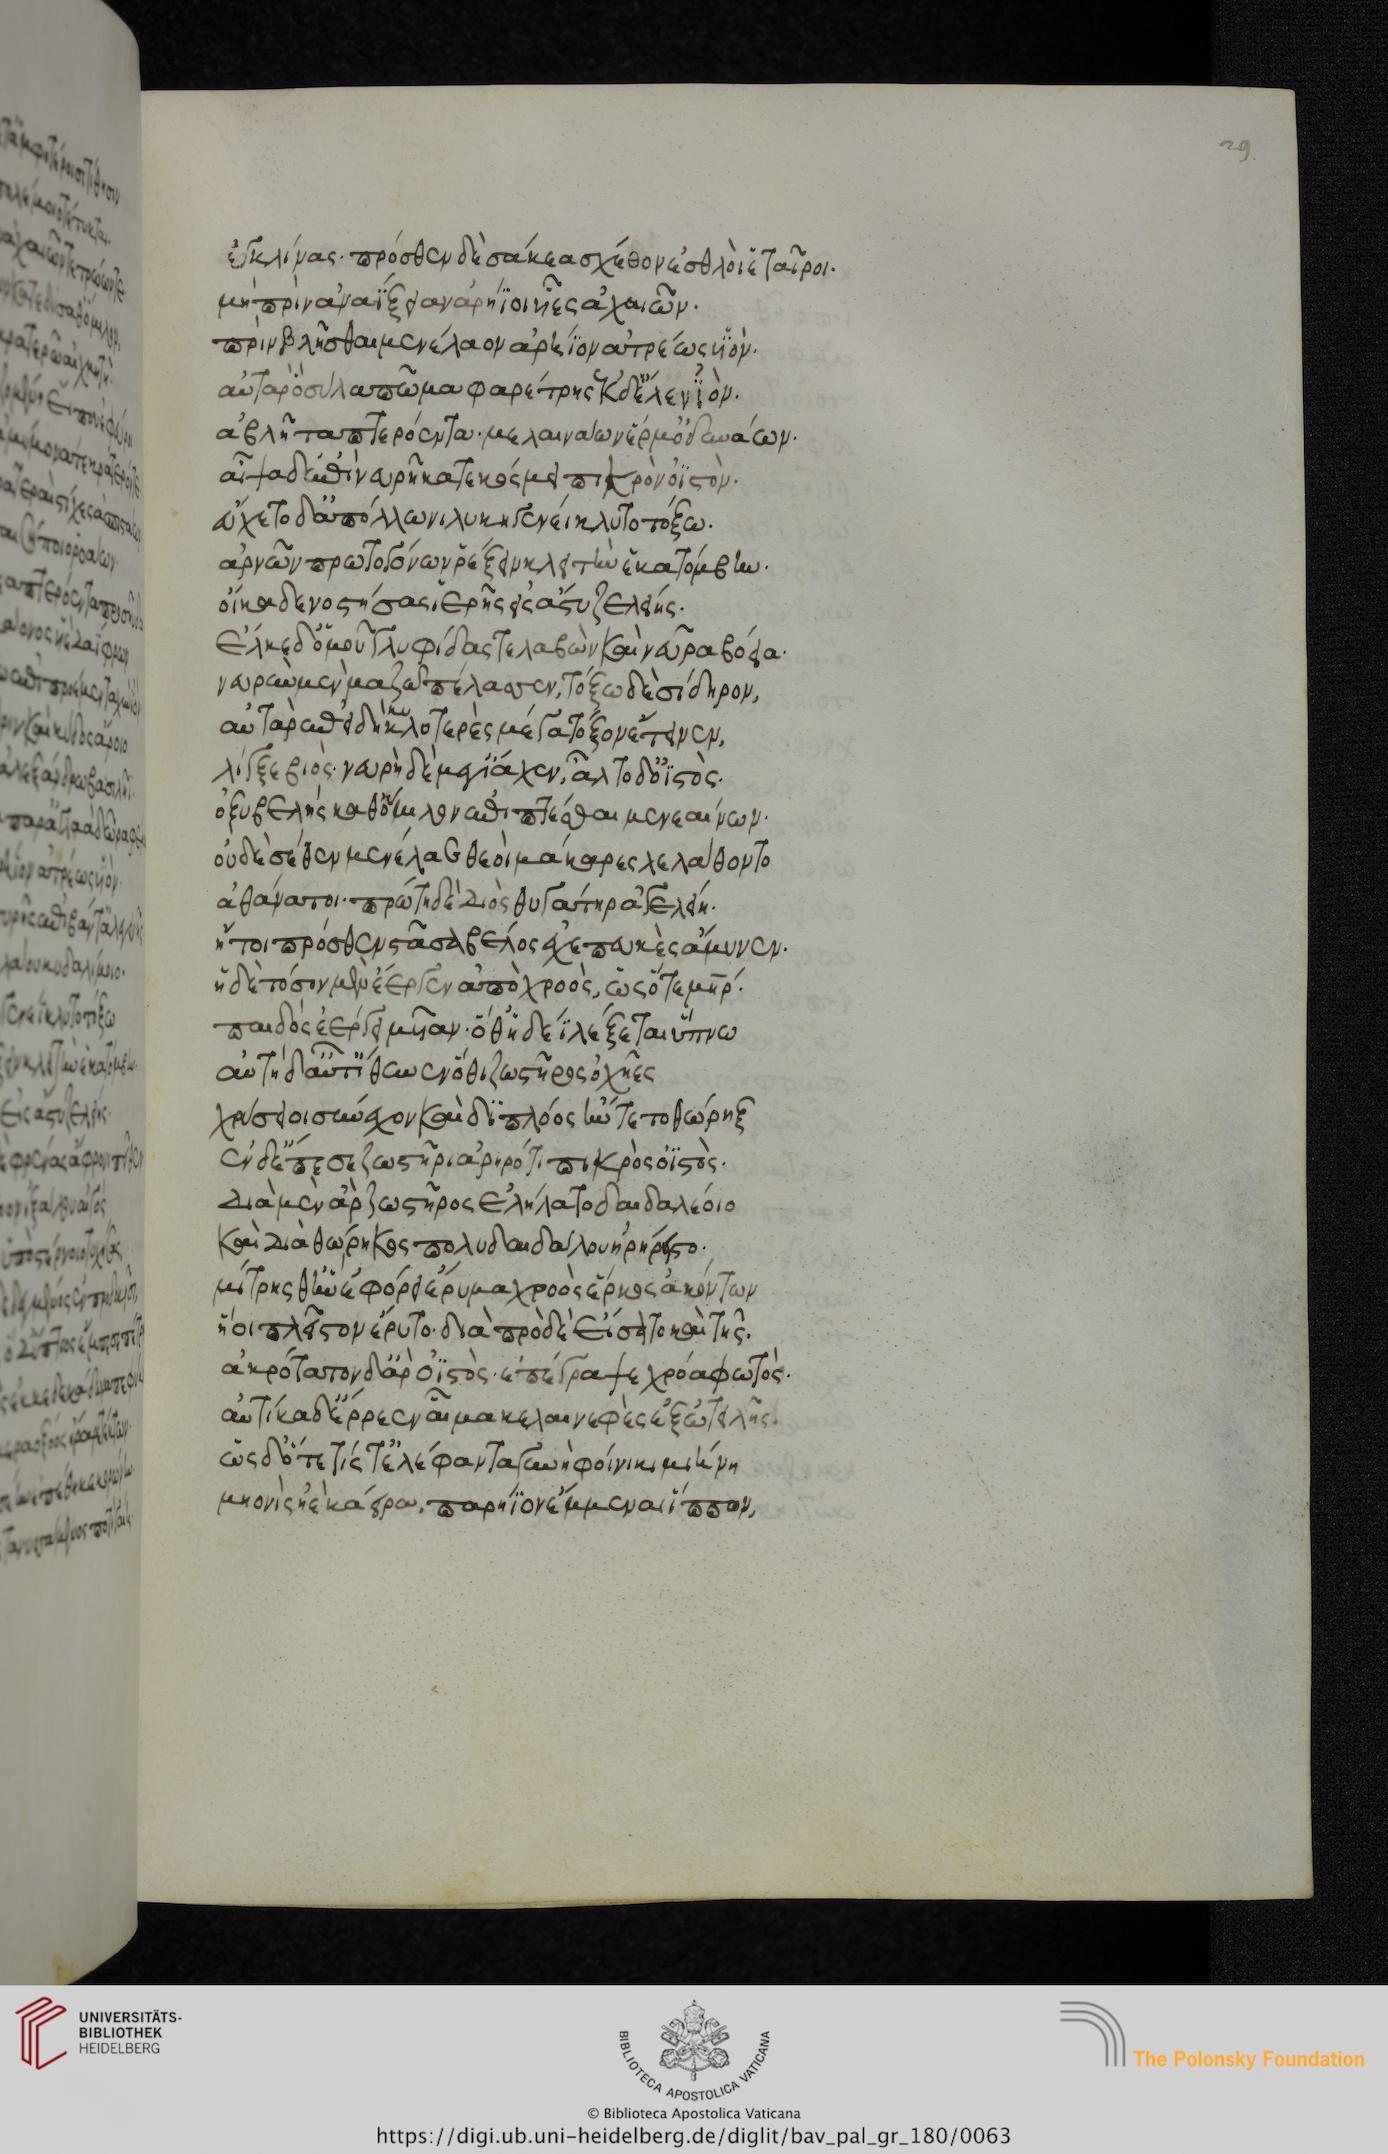 29
ἐγκλίνας· πρόσθεν δὲ σάκεα σχέθον ἐσθλοὶ ἑταῖροι·
μὴ πρὶν ἀναΐξειαν ἀρήϊοι υἷες ἀχαιῶν·
πρὶν βλῆσθαι μενέλαον ἀρήϊον ἀτρέως υἱόν·
αὐτὰρ ὁ σύλα πῶμα φαρέτρης· ἐκ δ' ἕλεν ἰὸν·
ἀβλῆτα πτερόεντα· μελαινάων ἕρμ' ὀδυνάων·
αἶψα δ' ἐπὶ νευρῆ κατεκόσμει πικρὸν ὀϊστὸν·
εὔχετο δ' ἀπόλλωνι λυκηγενέι κλυτοτόξω·
ἀρνῶν πρωτογόνων ῥέξειν κλειτὴν ἑκατόμβην·
οἴκαδε νοστήσας ἱερῆς εἰς ἄστυ ζελείης·
ἕλκε δ' ὁμοῦ γλυφίδας τε λαβὼν καὶ νεῦρα βόεια·
νευρὴν μὲν μαζῶ πέλασεν, τόξω δὲ σίδηρον,
αὐτὰρ ἐπεὶ δὴ κυκλοτερὲς μέγα τόξον ἔτεινεν,
λίγξε βιὸς· νευρὴ δὲ μέγ' ἴαχεν, ἆλτο δ' ὀϊστὸς·
ὀξυβελὴς καθ' ὅμιλον ἐπιπτέσθαι μενεαίνων·
οὐδὲ σέθεν μενέλαε θεοὶ μάκαρες λελάθοντο
ἀθάνατοι· πρώτη δὲ διὸς θυγάτηρ ἀγελείη·
ἥ τοι πρόσθεν στᾶσα βέλος ἐχεπευκὲς ἄμυνεν·
ἡ δὲ τόσον μὲν ἔεργεν ἀπὸ χροὸς, ὡς ὅτε μήτηρ
παιδὸς ἐέργει μυῖαν· ὅθ' ἡδέϊ λέξεται ὕπνω
αὐτὴ δ' αὖτ' ἴθυνεν ὅθι ζωστῆρος ὀχῆες
χρύσειοι σύνεχον καὶ διπλόος ἤντετο θώρηξ
ἐν δ' ἔπεσε ζωστῆρι ἀρηρότι πικρὸς ὀϊστὸς·
διὰ μὲν ἂρ ζωστῆρος ἐλήλατο δαιδαλέοιο
καὶ διὰ θώρηκος πολυδαιδάλου ἠρήρειστο·
μίτρης θ' ἣν ἐφόρει ἔρυμα χροὸς ἕρκος ἀκόντων
ἥ οἱ πλεῖστον ἔρυτο· διὰ πρὸ δὲ εἴσατο καὶ τῆς·
ἀκρότατον δ' ἂρ ὀϊστὸς· ἐπέγραψε χρόα φωτὸς·
αὐτίκα δ' ἔρρεεν αἷμα κελαινεφὲς ἐξ ὠτειλῆς·
ὡς δ' ὅτε τίς τ' ἐλέφαντα γυνὴ φοίνικι μιήνη
μηονὶς ἠὲ κάειρα, παρήϊον ἔμμεναι ἵππων,
UNIVERSITÄTS-
BIBLIOTHEK
HEIDELBERG
BIBLIOTECA APOSTOLICA VATICANA
The Polonsky Foundation
© Biblioteca Apostolica Vaticana
https://digi.ub.uni-heidelberg.de/diglit/bav_pal_gr_180/0063